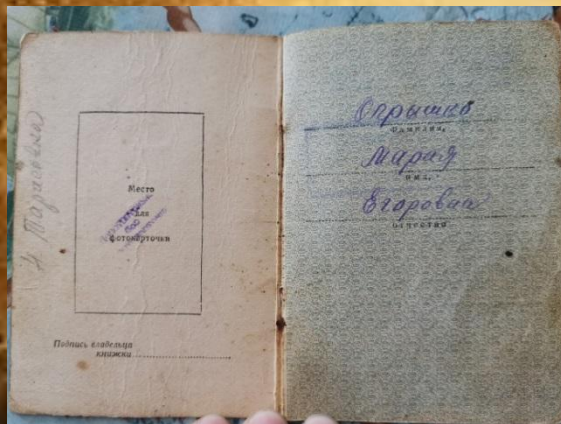 Место
для
фотокарточки
Подпись владельца
книжки
Огрышко
фамилия,
Мария
имя,
Егоровна
отчество